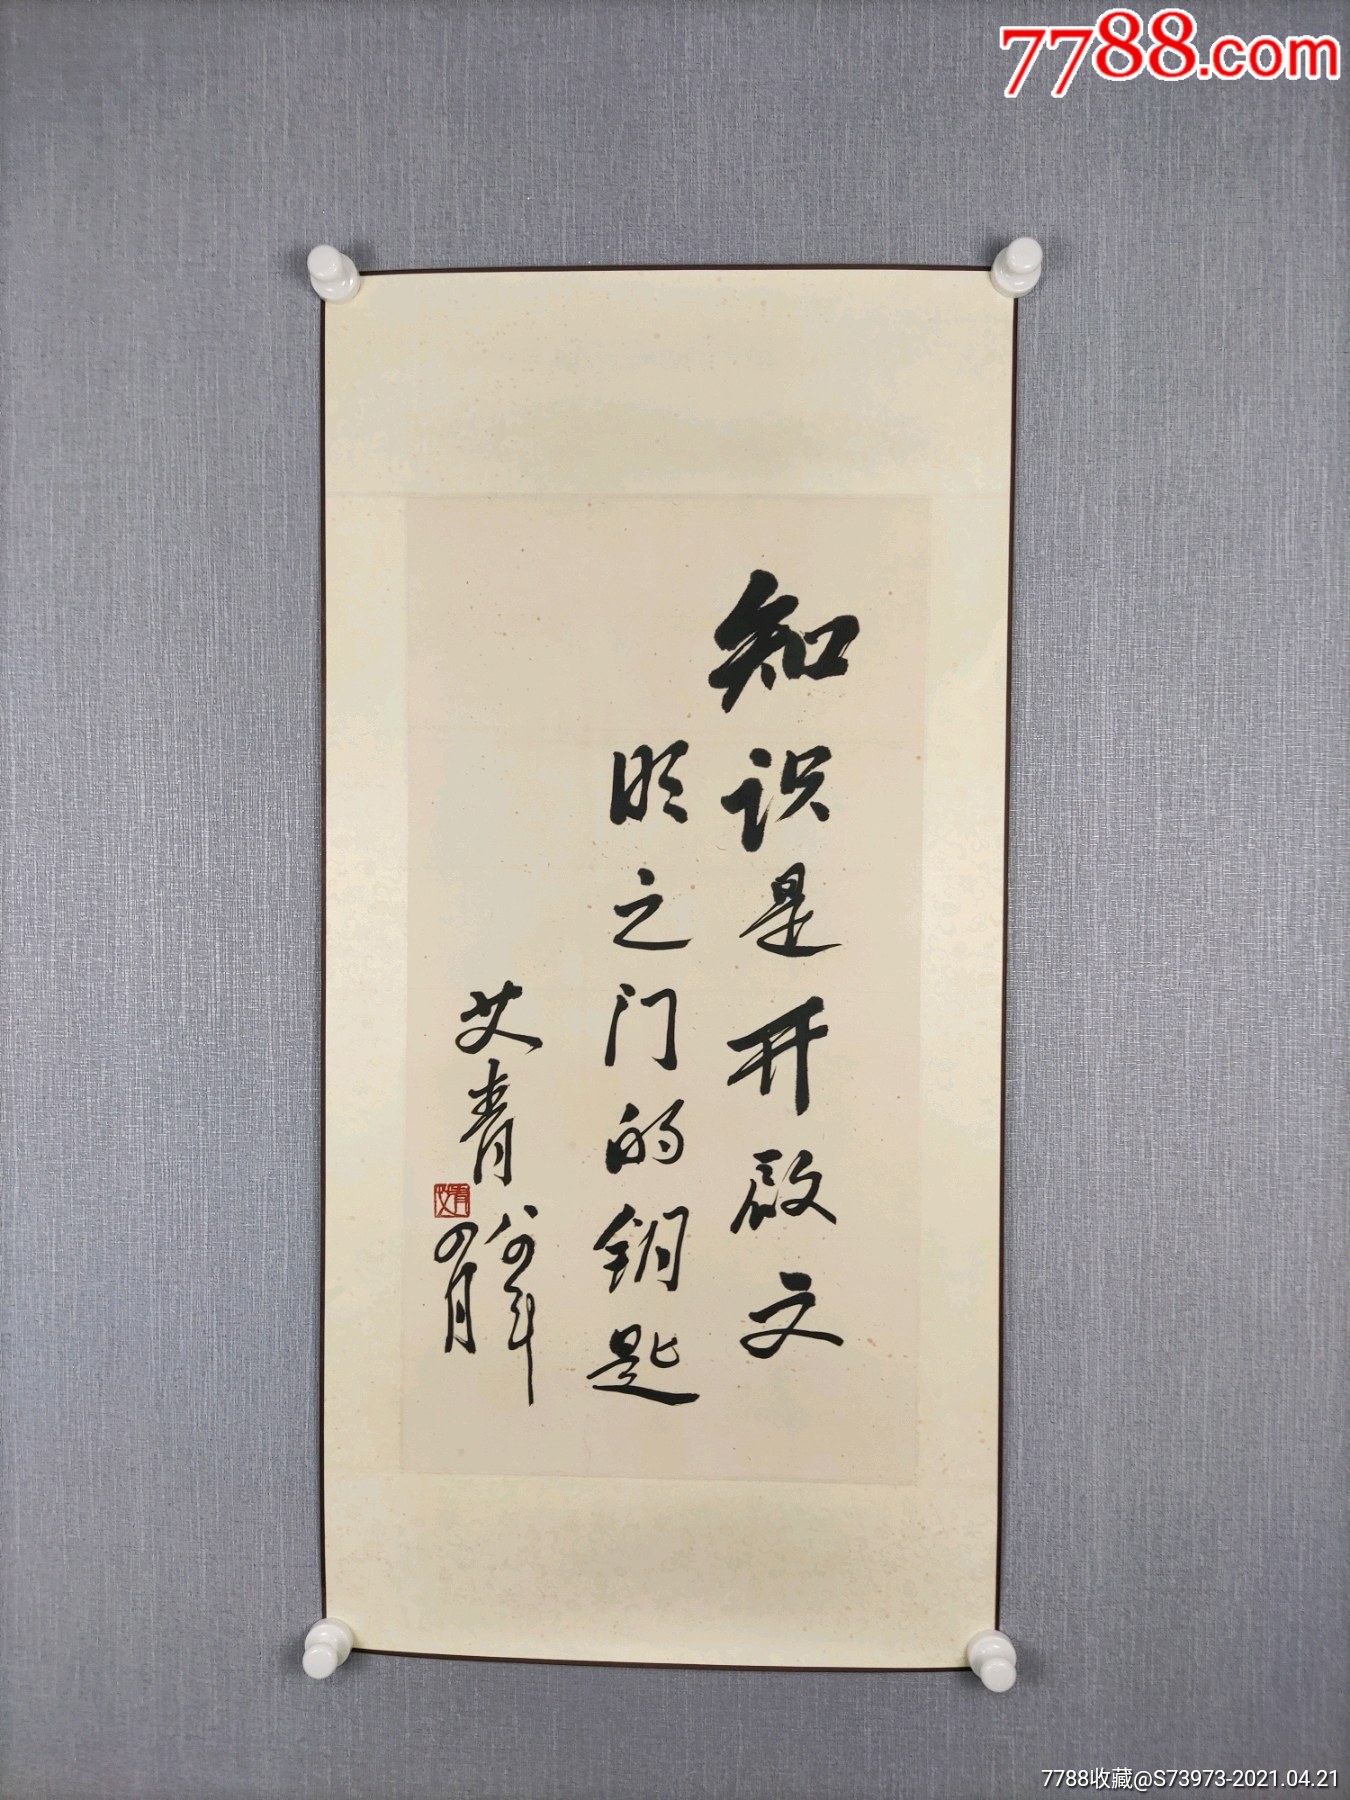 7788.com
知识是开启文
明之门的钥匙
艾青
八四年
四月
艾青
7788收藏@S73973-2021.04.21